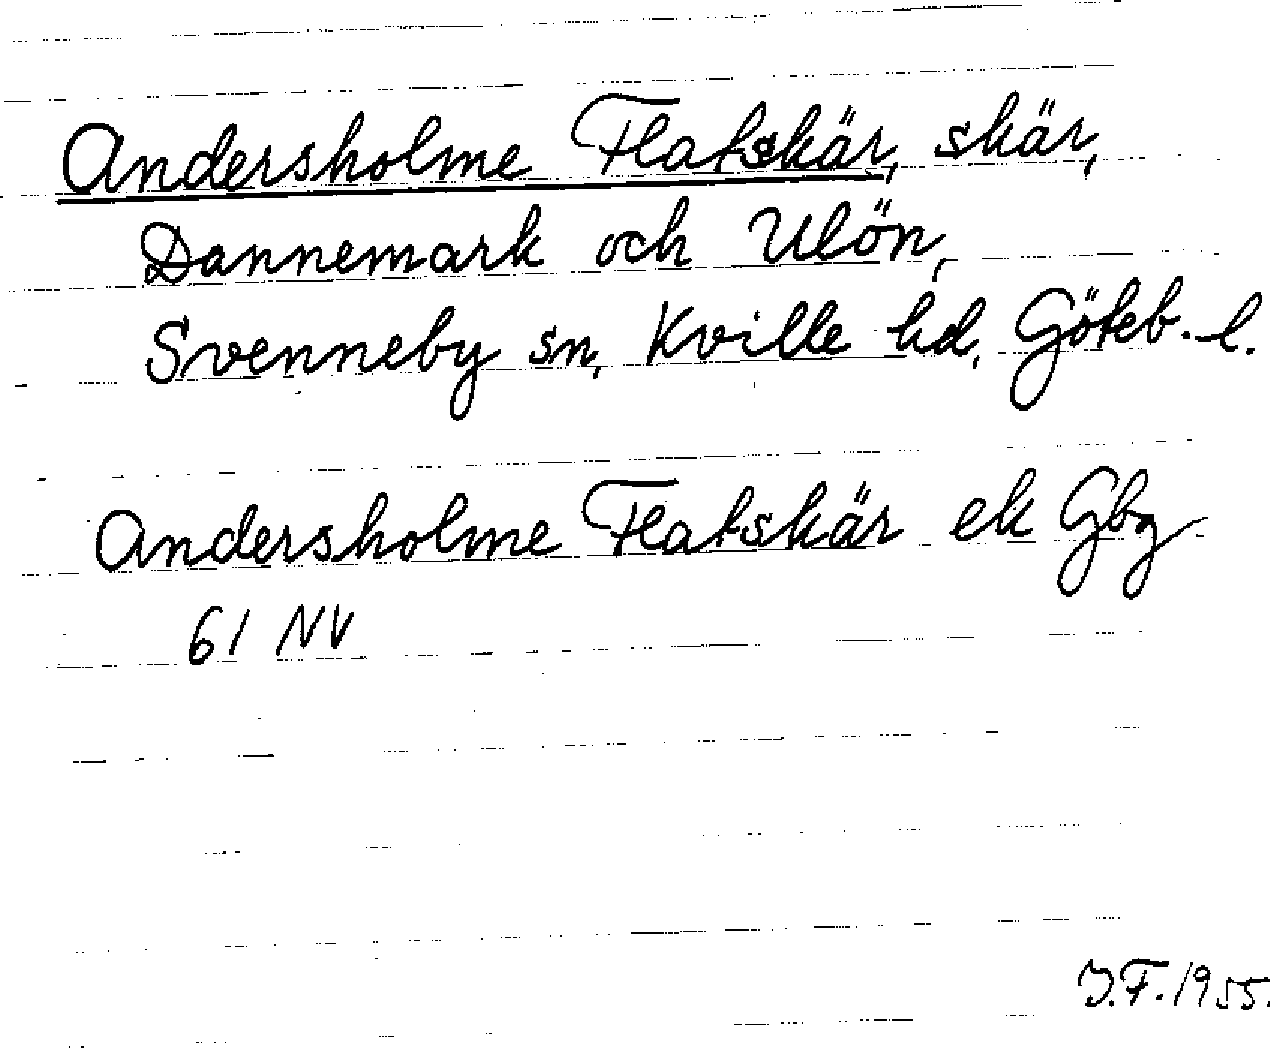 Andersholme Flatskär, skär,
Dannemark och Ulön,
Svenneby sn, Kville hd, Göteb. l.
Andersholme Flatskär ek Gbg
61 NV
J.F. 1955.